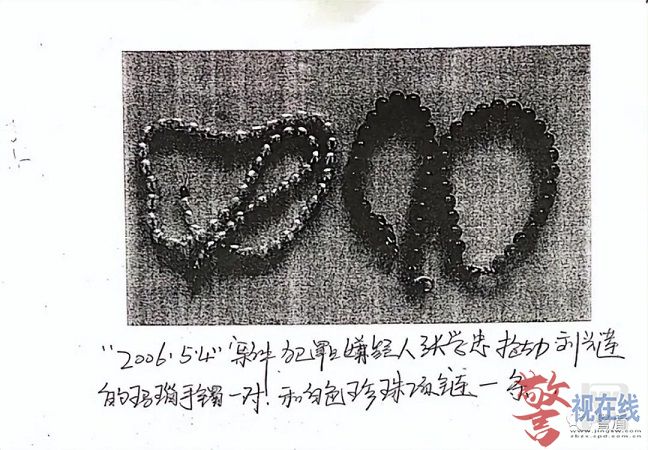 "2006·5·4"案件犯罪嫌疑人张学忠抢劫刘兴莲
的玛瑙手镯一对.和白色珍珠项链一条
警
视在线
www.jingsw.com
zbzx.cpd.com.cn